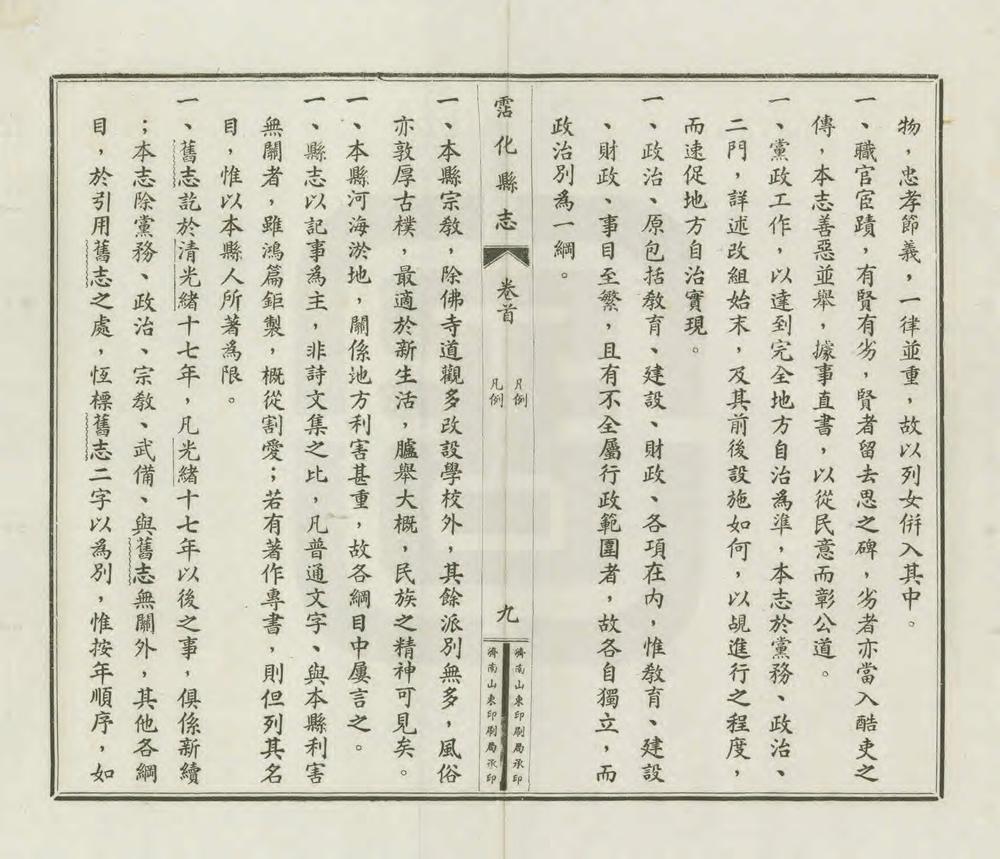 物，忠孝節義，一律並重，故以列女併入其中。
一、職官宦蹟，有賢有劣，賢者留去思之碑，劣者亦當入酷吏之
傳，本志善惡並舉，據事直書，以從民意而彰公道。
一、黨政工作，以達到完全地方自治為準，本志於黨務、政治、
二門，詳述改組始末，及其前後設施如何，以覘進行之程度，
而速促地方自治實現。
一、政治、原包括教育、建設、財政、各項在内，惟教育、建設
、財政、事目至繁，且有不全屬行政範圍者，故各自獨立，而
政治別為一綱。
霑化縣志
卷首
凡例
凡例
九
濟南山東印刷局承印
濟南山東印刷局承印
一、本縣宗教，除佛寺道觀多改設學校外，其餘派別無多，風俗
亦敦厚古樸，最適於新生活，臚舉大概，民族之精神可見矣。
一、本縣河海淤地，關係地方利害甚重，故各綱目中屢言之。
一、縣志以記事為主，非詩文集之比，凡普通文字、與本縣利害
無關者，雖鴻篇鉅製，概從割愛；若有著作專書，則但列其名
目，惟以本縣人所著為限。
一、舊志訖於清光緒十七年，凡光緒十七年以後之事，俱係新續
；本志除黨務、政治、宗教、武備、與舊志無關外，其他各綱
目，於引用舊志之處，恆標舊志二字以為別，惟按年順序，如